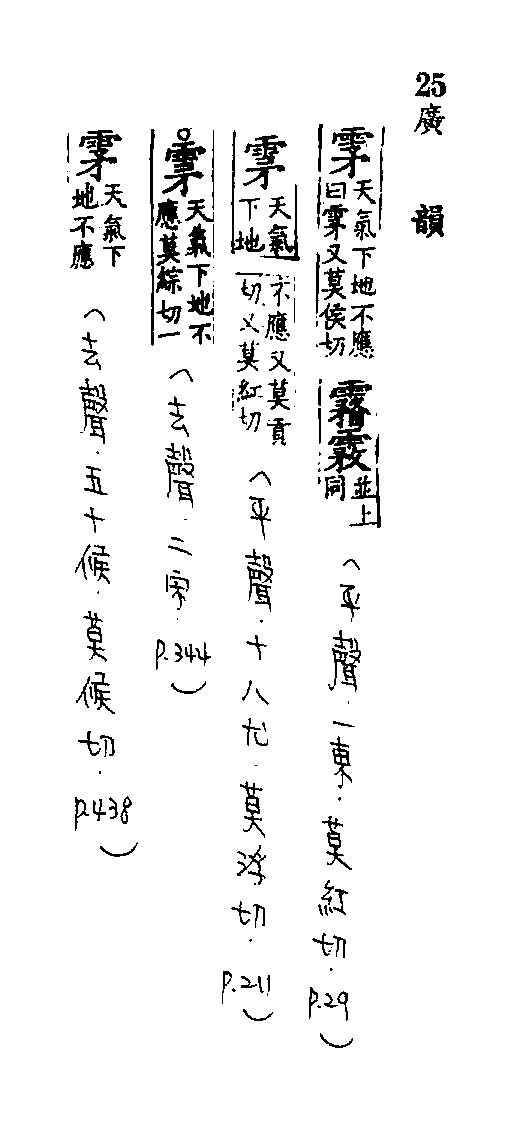 25 廣韻
雺天氣下地不應曰雺又莫侯切 霿雾並上同（平聲．一東．莫紅切．P.29）
雺天氣下地不應又莫貢切又莫紅切（平聲．十八尤．莫浮切．P.211）
雺天氣下地不應莫綜切一（去聲．二宋．P.344）
雺天氣下地不應（去聲．五十候．莫候切．P.438）